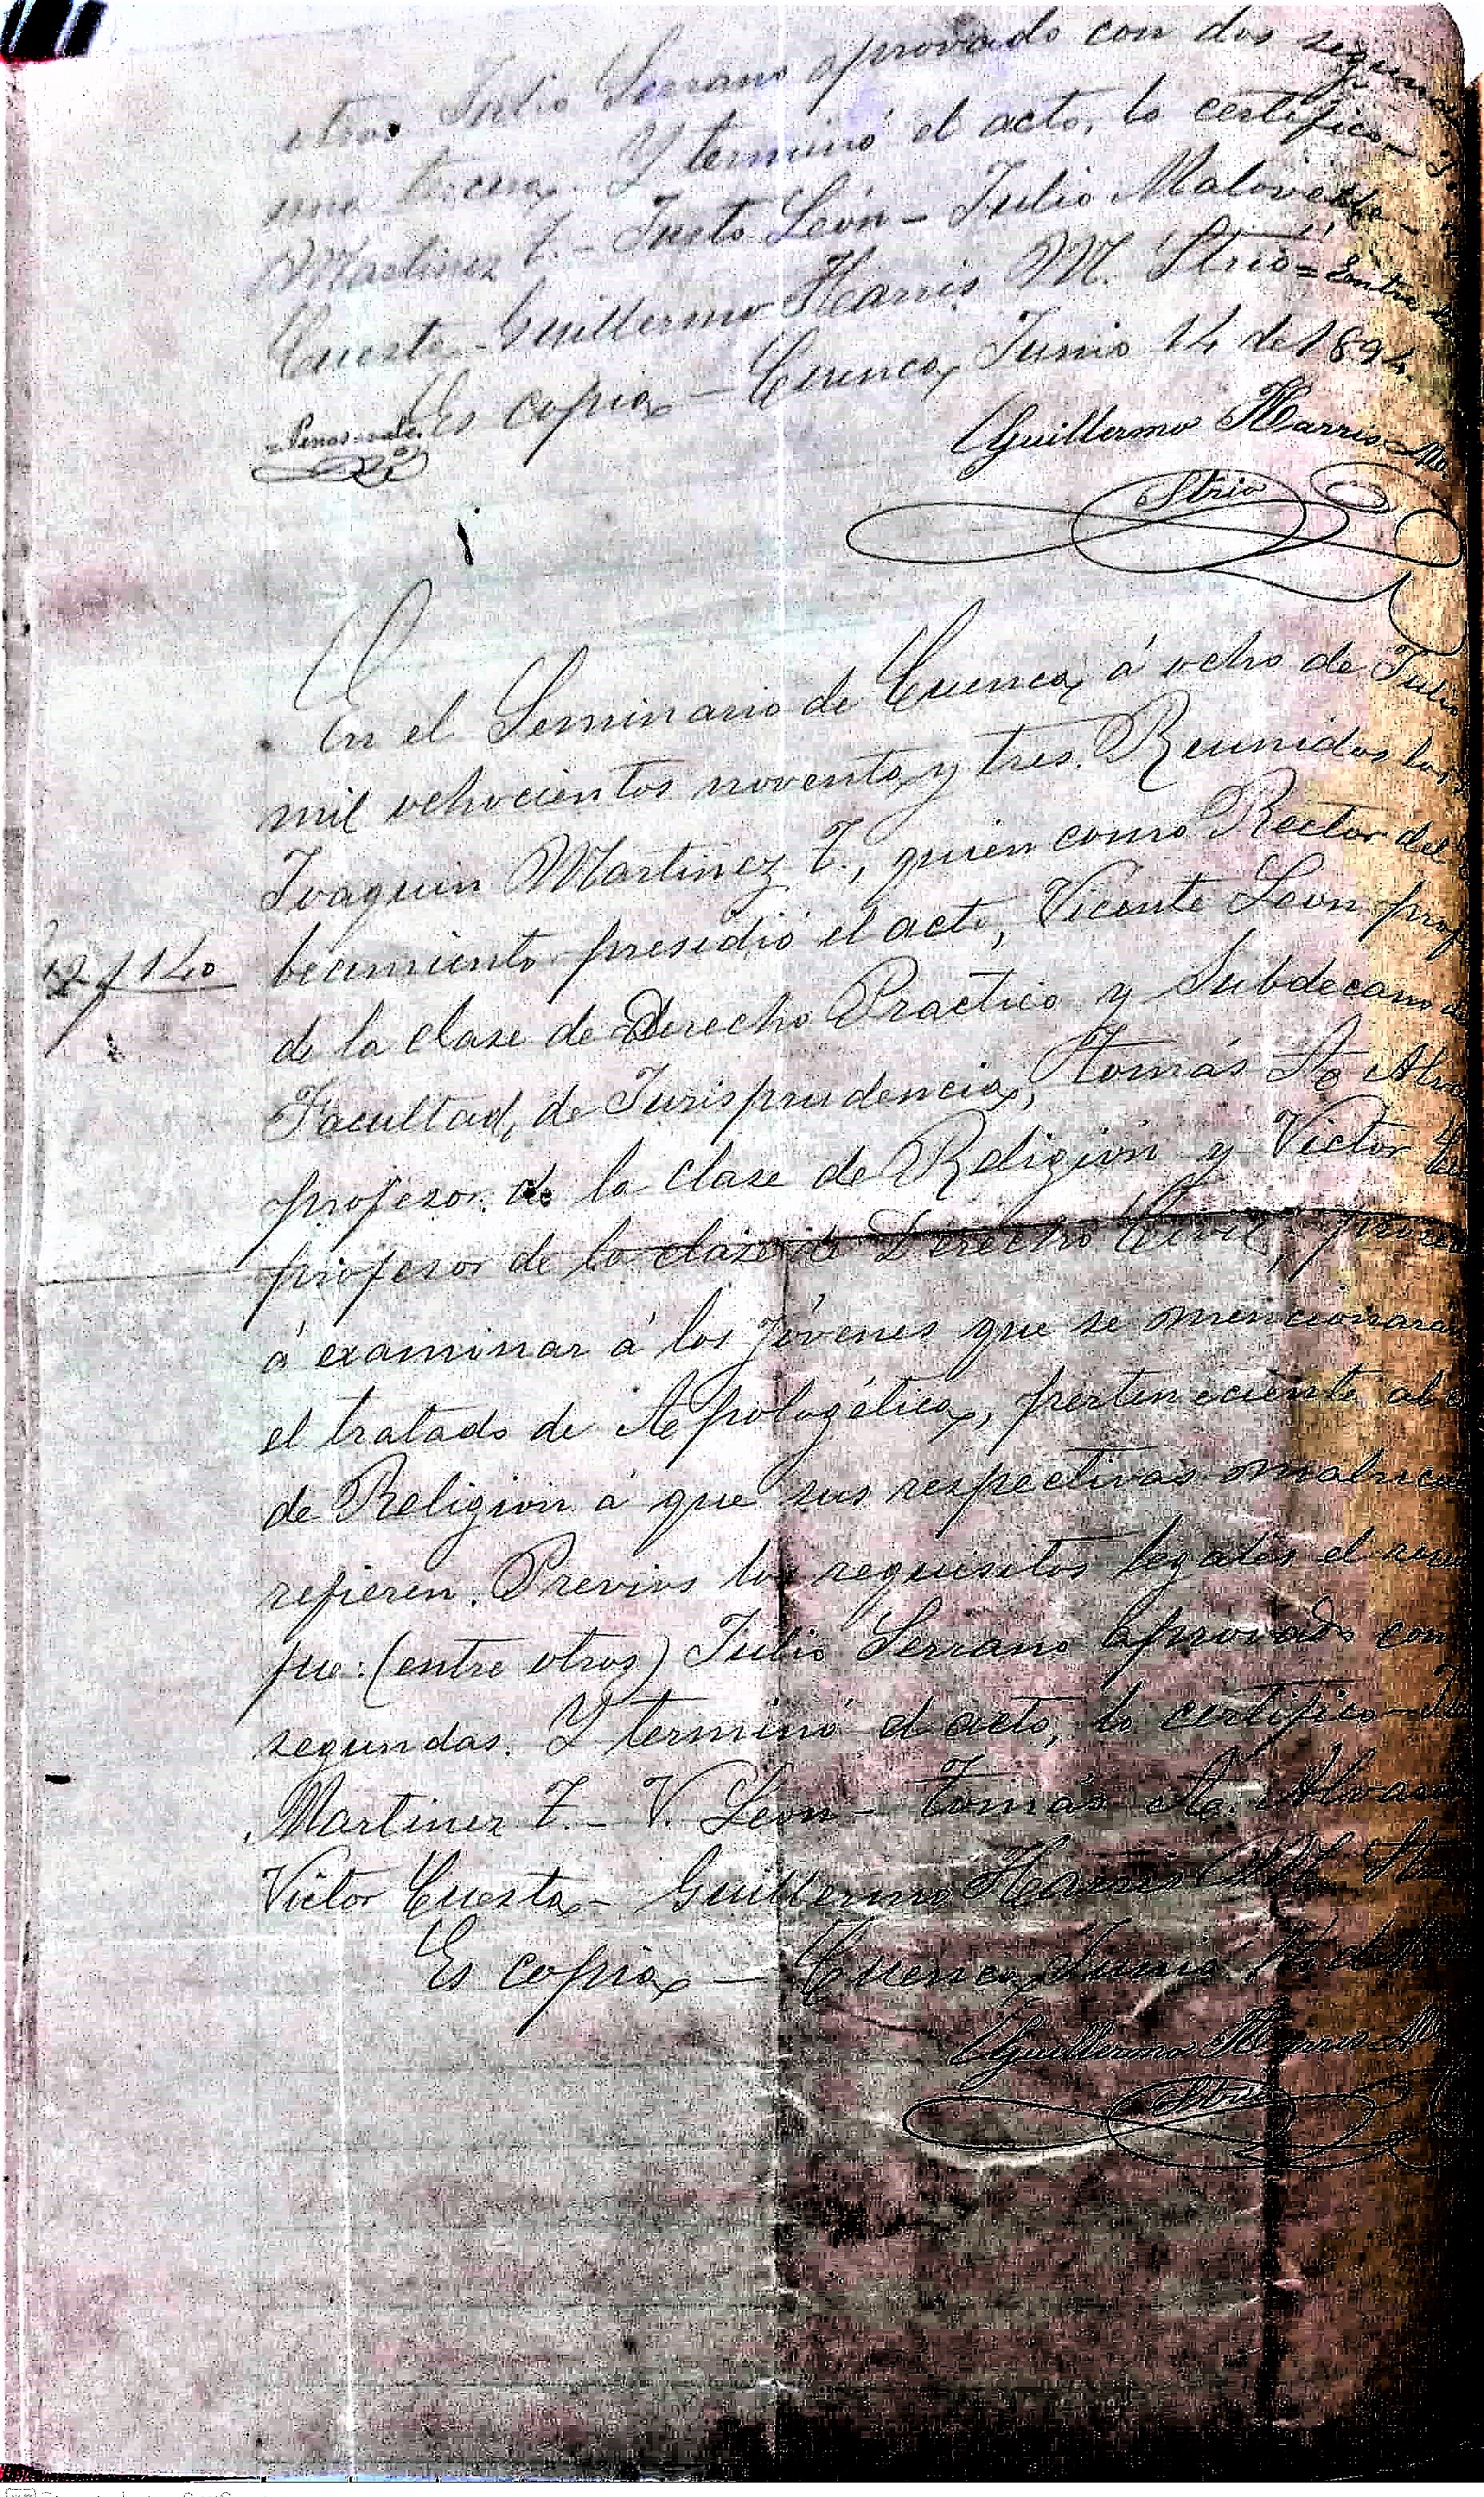 otros Julio Serrano aprovado con dos segundas
una tercera. Y terminó el acto, lo certifico
Martinez T. - Justo León - Julio Malovelle -
Cuesta - Guillermo Harris M. Strio = Entre
Es copia - Cuenca, Junio 14 de 1894.
Guillermo Harris M.
Strio
En el Seminario de Cuenca, á ocho de Julio
mil ochocientos noventa y tres. Reunidos los
Joaquin Martinez T., quien como Rector del
becimiento presidió el acto, Vicente Leon prof
de la clase de Derecho Practico y Subdecano
Facultad de Jurisprudencia, Tomás A. Alva
profesor de la clase de Religion y Victor
profesor de la clase de Derecho Civil,
á examinar á los jóvenes que se mencionarán
el tratado de Apologética, perteneciente al
de Religion á que sus respectivas matricu
refieren. Previos los requisitos legales el
fue: (entre otros) Julio Serrano aprovado con
segundas. Y terminó el acto, lo certifico -
Martinez T. - V. Leon - Tomás A. Alvar
Victor Cuesta - Guillermo Harris M.
Es copia - Cuenca, Junio
Guillermo Harris M
Strio